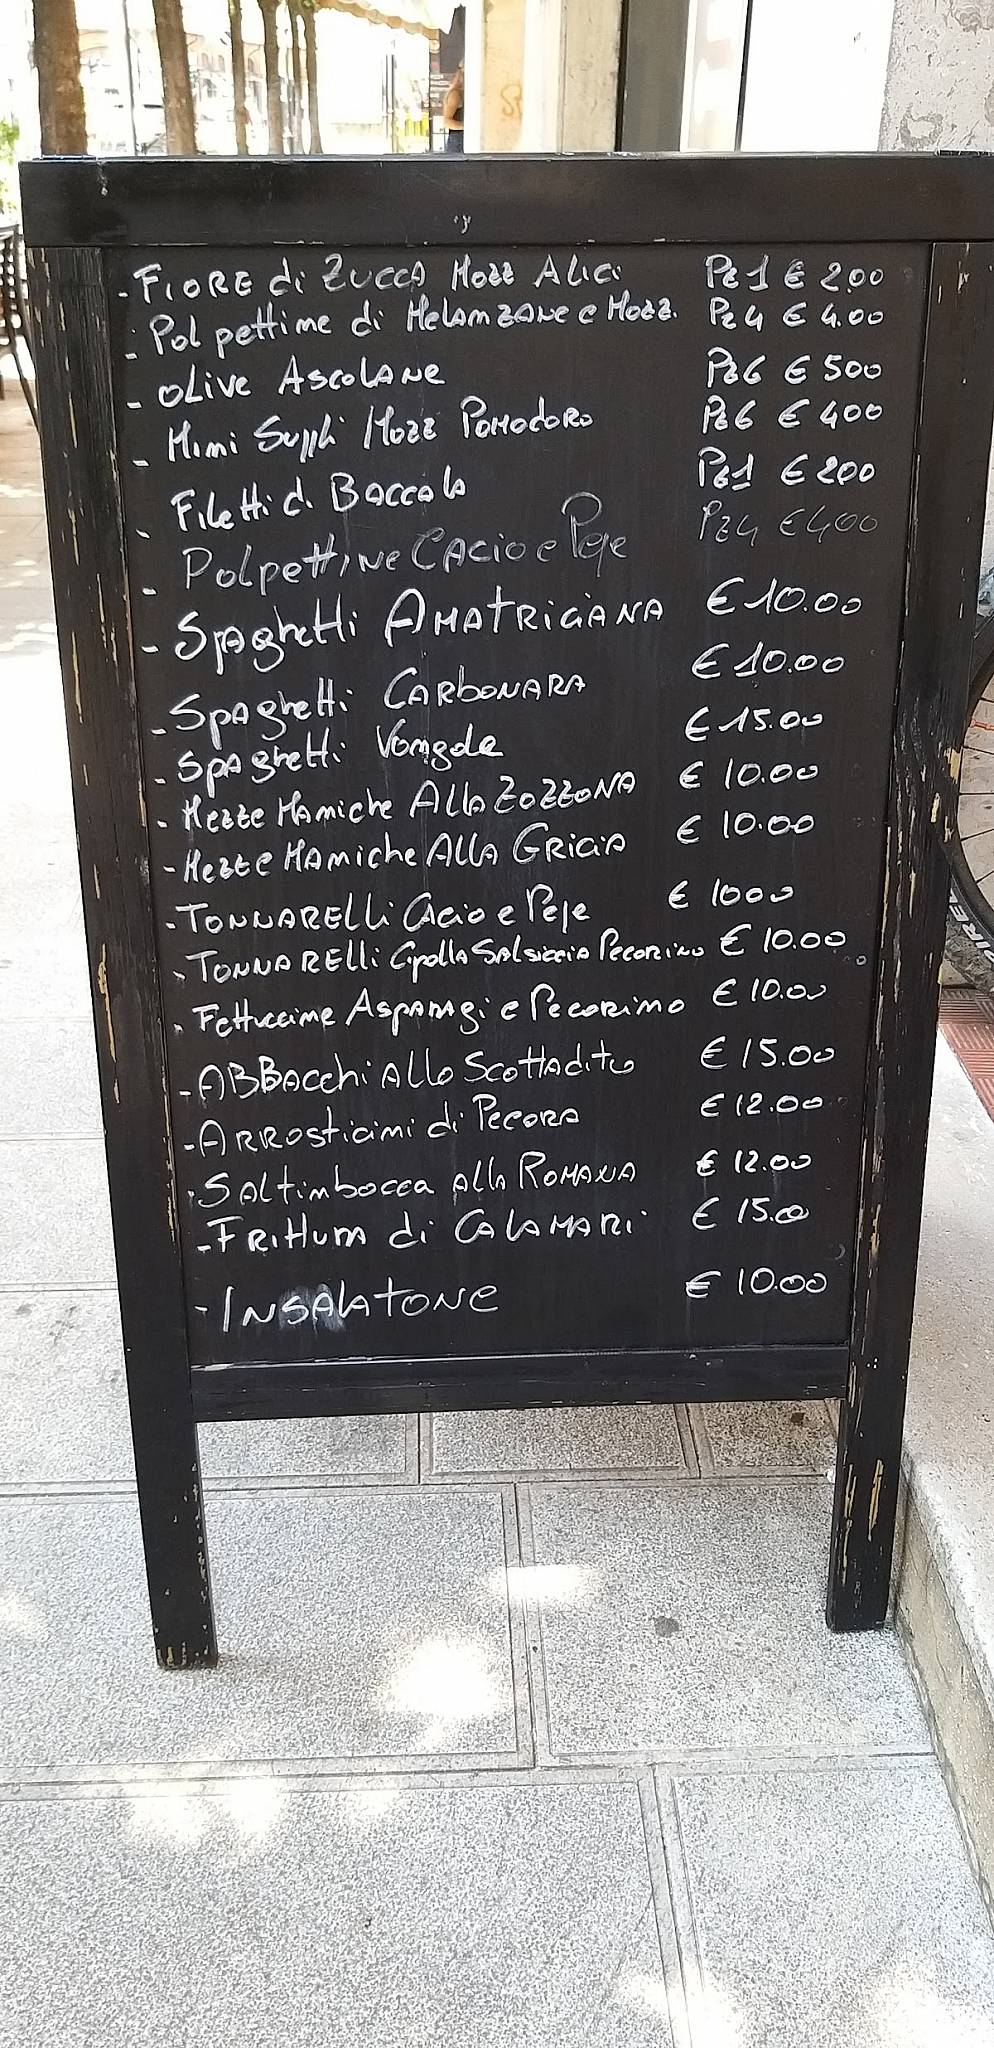 - FIORE di Zucca Mozz Alici Pz 1 € 2.00
- Polpettine di Melanzane e Mozz. Pz 4 € 4.00
- OLIVE ASCOLANE Pz 6 € 500
- Mini Supplì Mozz Pomodoro Pz 6 € 400
- Filetti di Baccalà Pz 1 € 200
- Polpettine Cacio e Pepe Pz 4 € 400
- Spaghetti AMATRICIANA € 10.00
- Spaghetti CARBONARA € 10.00
- Spaghetti Vongole € 15.00
- Mezze Maniche Alla Zozzona € 10.00
- Mezze Maniche Alla Gricia € 10.00
- TONNARELLI Cacio e Pepe € 1000
- TONNARELLI Cipolla Salsiccia Pecorino € 10.00
- Fettuccine Asparagi e Pecorino € 10.00
- ABBAcchi Allo Scottadito € 15.00
- Arrosticini di Pecora € 12.00
- Saltimbocca alla Romana € 12.00
- Frittura di CALAMARI € 15.00
- INSALATONE € 10.00